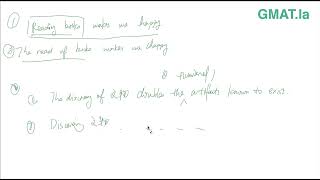 GMAT.la
① Reading books makes me happy
② The read of books makes me happy
① numbers
① The discovery of 290 doubles the artifacts known to exist.
② Discovery 290